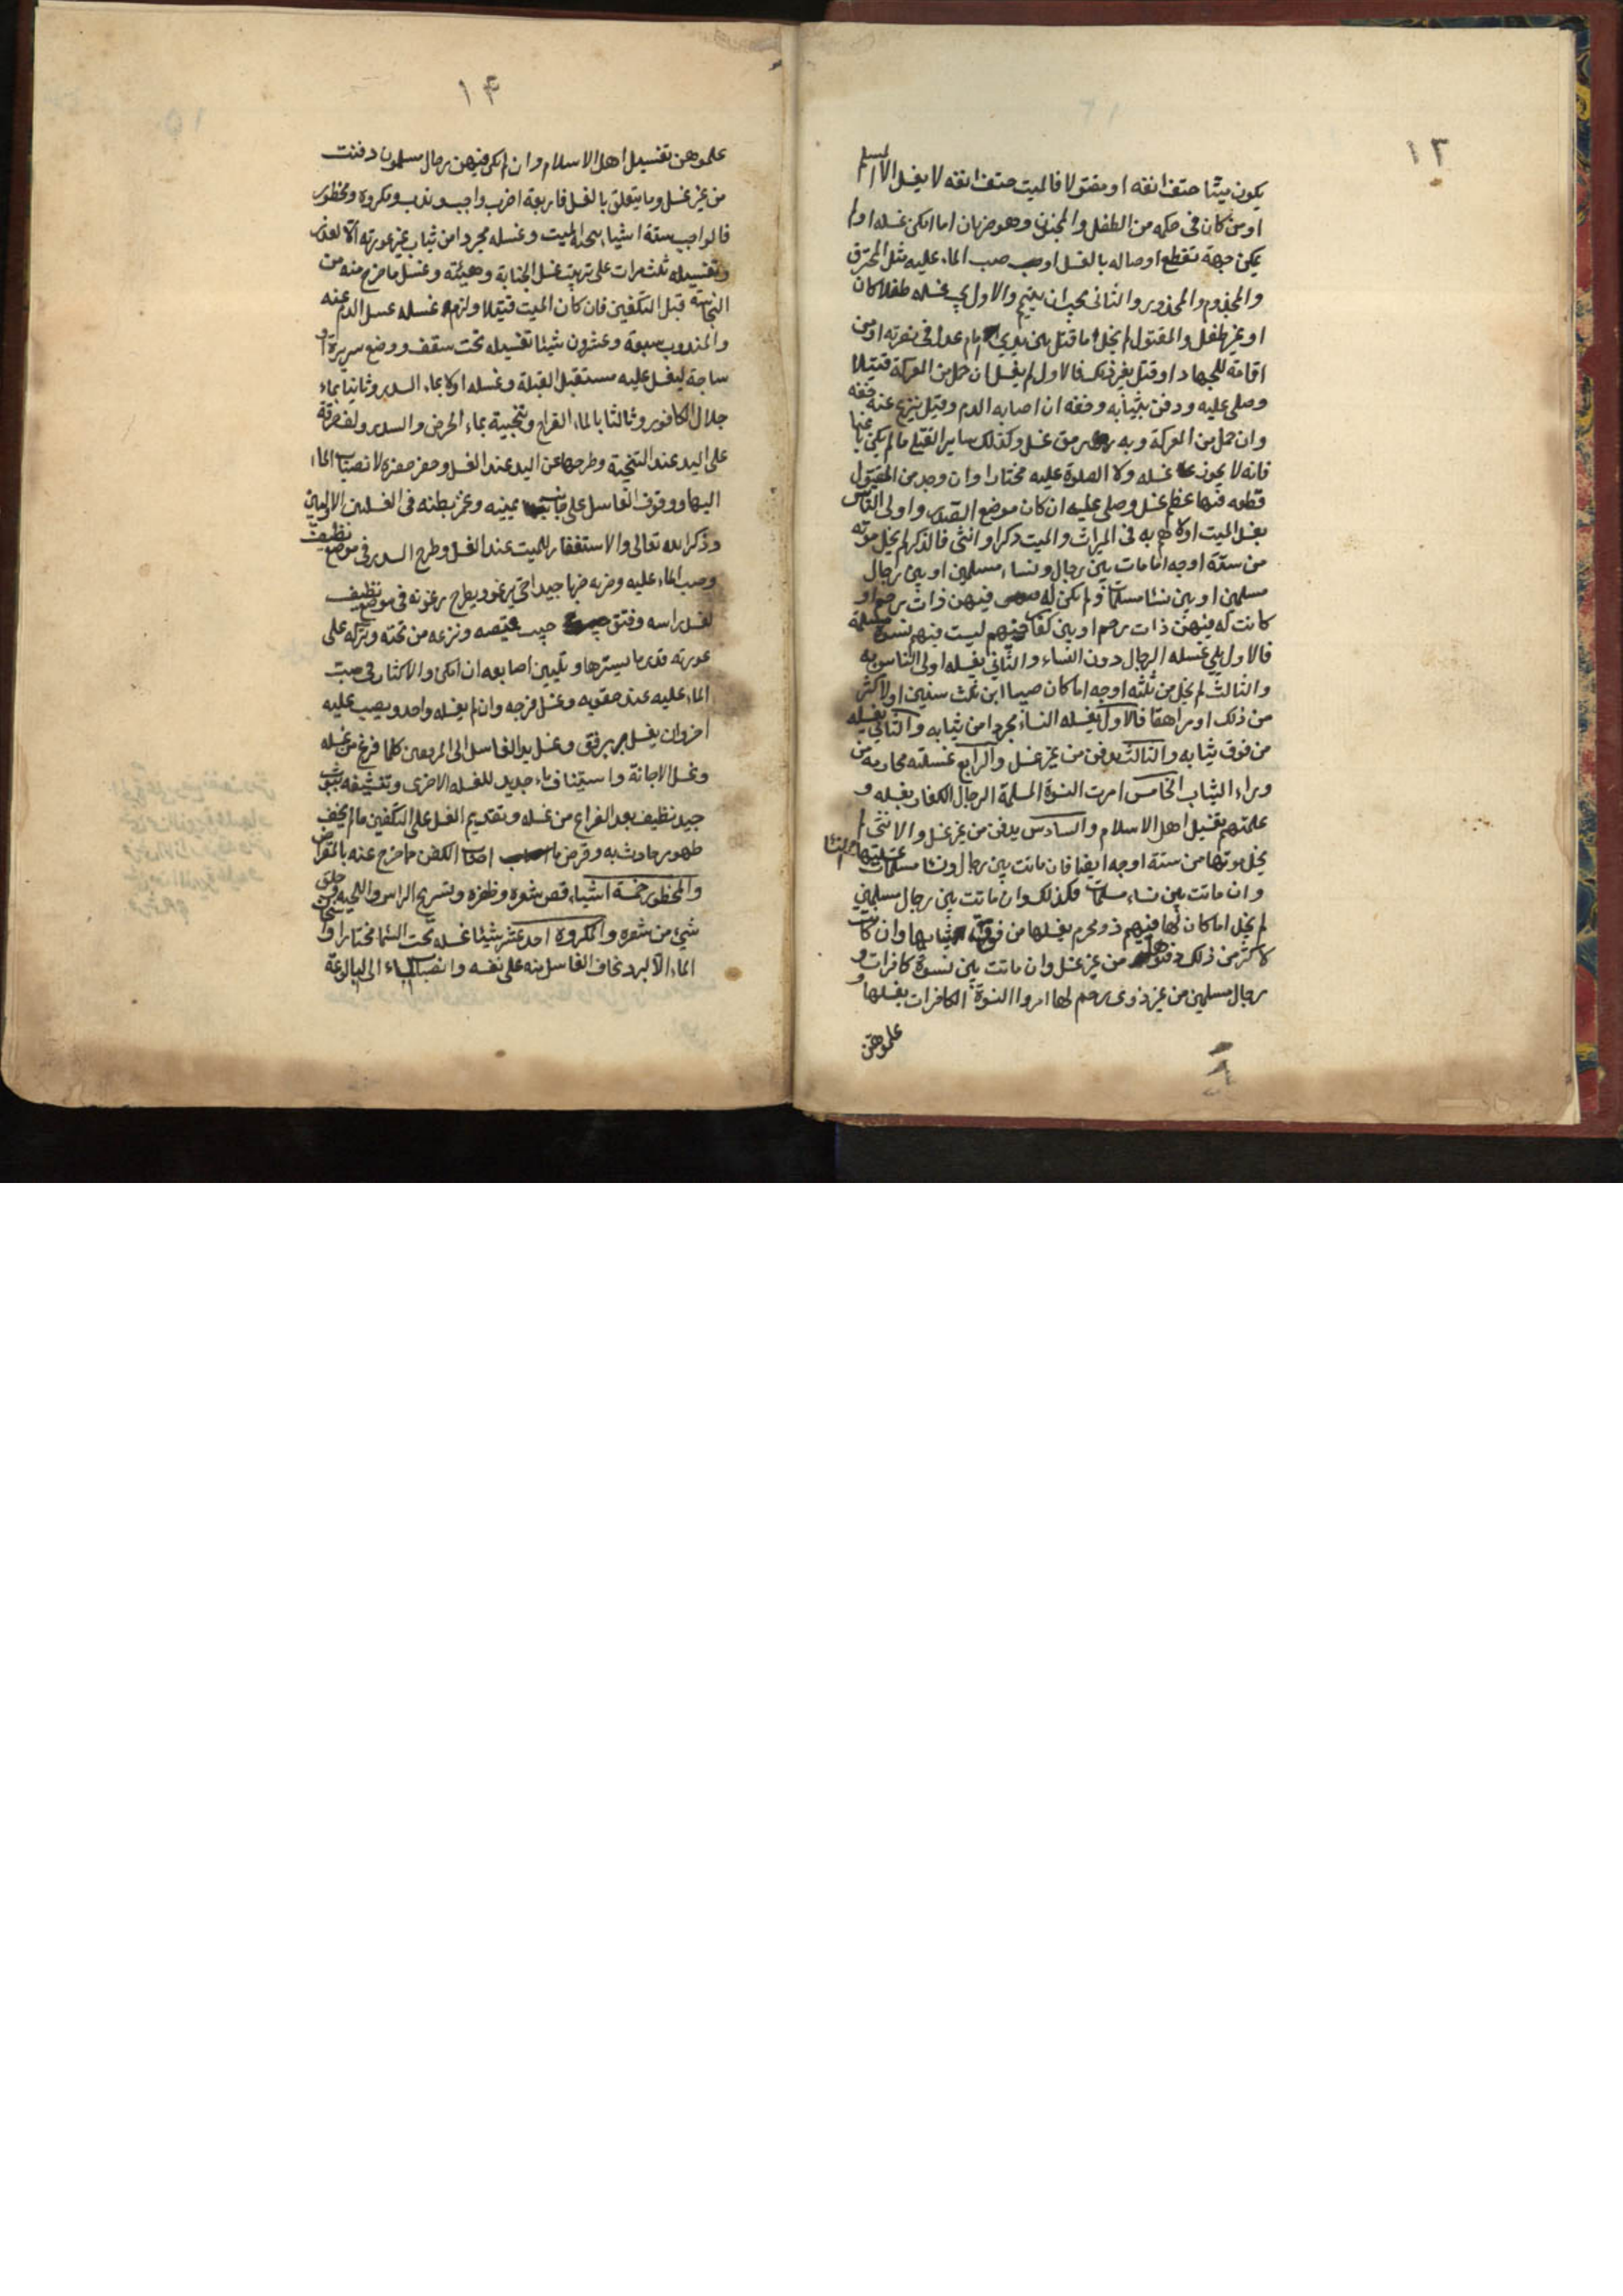 ١٣
يكون ميتا حتف انفه او مقتولا فالميت حتف انفه لا يغسل الا المسلم
او من كان فى حكمه من الطفل والمجنون وهو ضربان اما امكن غسله او لم
يمكن جهة تقطع اوصاله بالغسل او صب الماء عليه مثل المحترق
والمجذوم والمجدور والثانى يجب ان ييمم والاول يجب غسله طفلا كان
او غير طفل والمقتول لم يخل اما قتل بين يدى امام عدل فى نصرته او من
اقامة للجهاد او قتل بغير ذلك فالاول لم يغسل ان حمل من المعركة قتيلا
وصلى عليه ودفن بثيابه وخفه ان اصابه الدم وقيل ينزع عنه خفه
وان حمل من المعركة وبه رمق غسل وكذلك ساير القتلى ما لم يكن باغيا
فانه لا يجوز غسله ولا الصلوة عليه مختارا وان وجد من المقتول
قطعه فيها عظم غسل وصلى عليه ان كان موضع الصدر واولى الناس
بغسل الميت اولاهم به فى الميراث والميت ذكر او انثى فالذكر لم يخل موته
من ستة اوجه اما مات بين رجال ونساء مسلمين او بين رجال
مسلمين او بين نسا مسلمات ولم يكن له فيهن ذات رحم او
كانت له فيهن ذات رحم او بين كفار ليست فيهم نسوة مسلمة
فالاول يلى غسله الرجال دون النساء والثانى يغسله اولى الناس به
والثالث لم يخل من ثلثه اوجه اما كان صبيا ابن ثلث سنين او لاكثر
من ذلك او مراهقا فالاول يغسله النساء مجردا من ثيابه والثانى يغسله
من فوق ثيابه والثالث يدفن من غير غسل والرابع غسلته محارمه من
وراء الثياب الخامس امرت النسوة المسلمة الرجال الكفار بغسله و
علمتهم تغسيل اهل الاسلام والسادس يدفن من غير غسل والانثى لم
يخل موتها من ستة اوجه ايضا فان ماتت بين رجال ونسا مسلمات غسلتها النسا
وان ماتت بين نساء مسلمات فكذلك وان ماتت بين رجال مسلمين
لم يخل اما كان لها فيهم ذو محرم يغسلها من فوق ثيابها وان كانت
لاكثر من ذلك دفنوها من غير غسل وان ماتت بين نسوة كافرات و
رجال مسلمين من غير ذوى رحم لها امروا النسوة الكافرات بغسلها و
علموهن
١۴
علموهن تغسيل اهل الاسلام وان لم يكن فيهن رجال مسلمون دفنت
من غير غسل وما يتعلق بالغسل فاربعة اضرب واجب وندب ومكروه ومحظور
فالواجب ستة اشياء تنحية الميت وغسله مجردا من ثياب غير عورته الا لعذر
وتغسيله ثلث مرات على ترتيب غسل الجنابة وهيئته وغسل ما خرج منه من
النجاسة قبل التكفين فان كان الميت قتيلا ولزم غسله غسل الدم عنه
والمندوب سبعة وعشرون شيئا تغسيله تحت سقف ووضع سريرة او
ساجة ليغسل عليه مستقبل القبلة وغسله اولا بماء السدر وثانيا بماء
جلال الكافور وثالثا بالماء القراح وتنجيته بماء الحرض والسدر ولف خرقة
على اليد عند التنجية وطرحها عن اليد عند الغسل وحفر حفرة لانصباب الماء
اليها ووقوف الغاسل على جانب يمينه وغمز بطنه فى الغسلتين الاوليين
وذكر الله تعالى والاستغفار للميت عند الغسل وطرح السدر فى موضع نظيف
وصب الماء عليه وضربه ضربا جيدا حتى يرغو ويطرح رغوته فى موضع نظيف
لغسل راسه وفتق جيب قميصه ونزعه من تحته وتركه على
عورته قدر ما يسترها وتليين اصابعه ان امكن والاكثار فى صب
الماء عليه عند حقويه وغسل فرجه وان يغسله واحد ويصب عليه
اخر وان يغسل برفق وغسل يد الغاسل الى المرفقين كلما فرغ من غسله
وغسل الاجانة واستيناف ماء جديد للغسله الاخرى وتنشيفه بثوب
جيد نظيف بعد الفراغ من غسله وتقديم الغسل على التكفين ما لم يخف
ظهور حادث به وقرض ما اصاب الكفن ما خرج عنه بالمقراض
والمحظور خمسة اشياء قص شعره وظفره وتسريح الراس واللحيه وحلق
شئ من شعره والمكروه احد عشر شيئا غسله تحت السما مختارا واسخان
الماء الا لبرد يخاف الغاسل منه على نفسه وانصباب الماء الى البالوعة